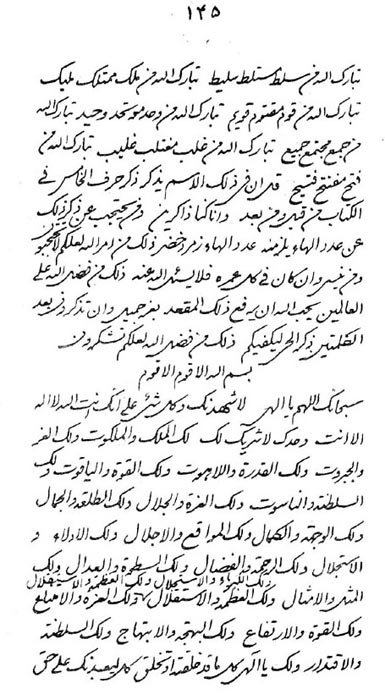 ۱۴۵
تبارک الله من سلط مستلط سلیط تبارک الله من ملک ممتلک ملیک
تبارک الله من قوم مقتوم قویم تبارک الله من وحد موتحد وحید تبارک الله
من جمع مجتمع جمیع تبارک الله من غلب مغتلب غلیب تبارک الله من
فتح مفتتح فتیح قل ان فی ذلک الاسم یذکر ذکر حرف الخامس فی
الکتاب من قبل و من بعد وانا کنا ذاکرین و من یحتجب عن ذکر ذلک
عن عدد الهاء یلزمنه عدد الهاء من ذلک من امر الله لعلکم
و من وان کان فی کل عمره فلا یسئل الله عنه ذلک من فضل الله علی
العالمین یحب الله ان یرفع ذلک المقعد وان تذکرونی بعد
ذکر الحی لیکفیکم ذلک من فضل الله لعلکم تشکرون
بسم الله الاقوم الاقوم
سبحانک اللهم یا الهی لاشهدنک وکل شئ علی انک انت الله لا اله
الا انت وحدک لا شریک لک لک الملک والملکوت ولک العز
والجبروت ولک القدرة واللاهوت ولک القوة والیاقوت ولک
السلطنة والناسوت ولک العزة والجلال ولک الطلعة والجمال
ولک الوجهة والکمال ولک المواقع والاجلال ولک الادلاء و
الاستجلال ولک الرحمة والفضال ولک السطوة والعدال ولک
ولک الکبریاء والاستجلال ولک العظمة والاستقلال
المثل والامثال ولک العظمة والاستقلال ولک العزة والامتناع
ولک القوة والارتفاع ولک البهجة والابتهاج ولک السلطنة
والاقتدار ولک یا الهی کل ما قد خلقته او تخلق کل لیعبدنک علی حق